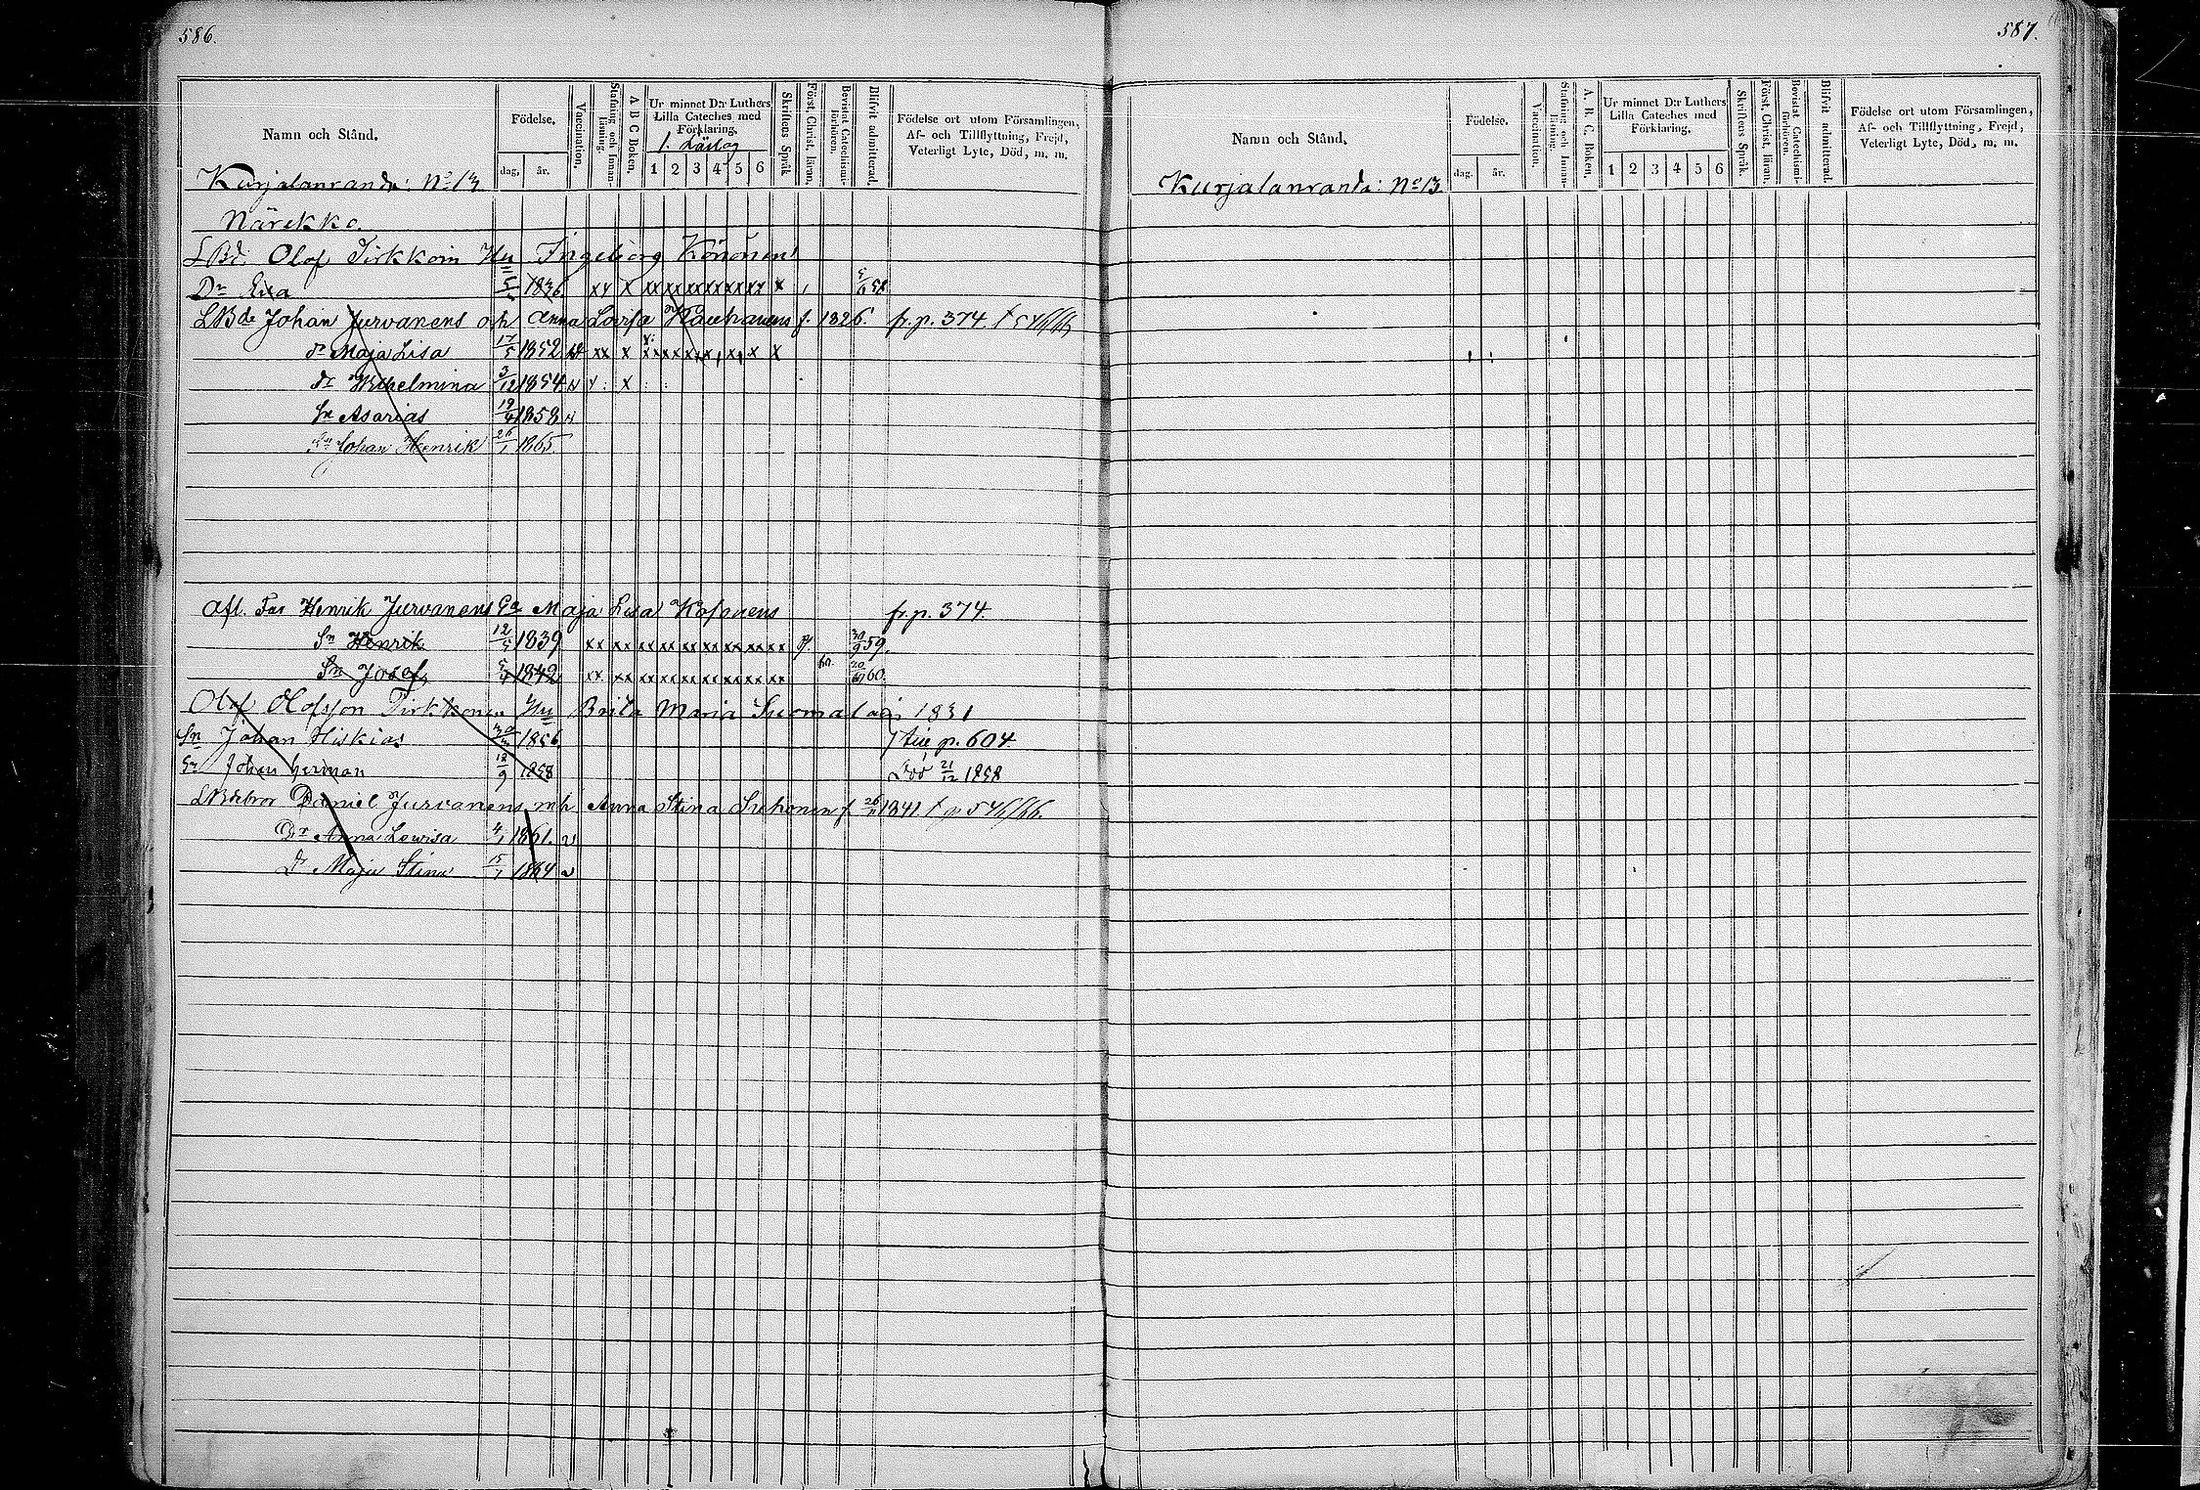 586.
Namn och Stånd.
Födelse.
dag. år.
Vaccination.
Stafning och Innanläsning.
A B C Boken.
Ur minnet D:r Luthers Lilla Cateches med Förklaring.
1 2 3 4 5 6
Skriftens Språk
Först. Christ. läran.
Bevistat Catechismiförhören.
Blifvit admitterad.
Födelse ort utom Församlingen, Af- och Tillflyttning, Frejd, Veterligt Lyte, Död, m. m.
Kurjalanranda: No 13
Närekko.
LBd. Olof Tirkkoin Hu Ingeborg Könönen
Dr Eva 1836. xx x xx xx xx xx xx xx x
LBde Johan Jurvanens och Anna Lovisa Kauhanens f. 1826. fr. p. 374.
dr Maja Lisa 17/5 1852 xx x
dr Wilhelmina 3/12 1854
Sn Asarias 19/4 1858
Sn Johan Henrik 26/1 1865.
Afl. Far Henrik Jurvanens Ea Maja Lisa Kosonens fr. p. 374.
Sn Henrik 12/5 1839 xx xx xx xx xx xx xx xx xx 59.
Sn Josef 1842 xx xx xx xx xx xx xx xx xx 60.
Olof Olofsson Tirkkonen Hu Brita Maria Suomalain 1831
Sn Johan Hiskias 1856 p. 604.
Sn Johan Herman 18/9 1858 Död 21/12 1858
LBdsbror Daniel Jurvanens mh Anna Stina f. 1841.
Dr Anna Lowisa 4/1 1861. v
Dr Maja Stina 15/1 1864 v
587.
Namn och Stånd.
Födelse.
dag. år.
Vaccination.
Stafning och Innanläsning.
A. B. C. Boken.
Ur minnet D:r Luthers Lilla Cateches med Förklaring.
1 2 3 4 5 6
Skriftens Språk.
Först. Christ. läran.
Bevistat Catechismiförhören.
Blifvit admitterad.
Födelse ort utom Församlingen, Af- och Tillflyttning, Frejd, Veterligt Lyte, Död, m. m.
Kurjalanranda: No 13